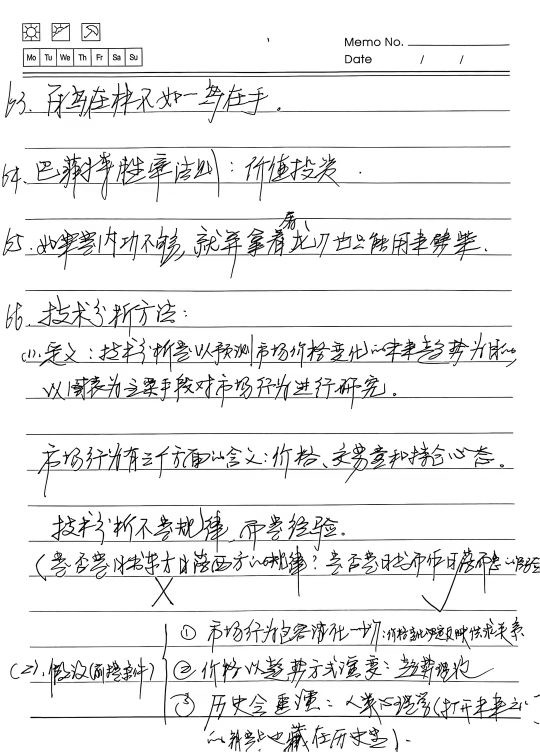 Memo No.
Mo Tu We Th Fr Sa Su
Date / /
63. 百鸟在林不如一鸟在手。
64. 巴菲特胜率法则：价值投资.
65. 如果内功不够, 就算拿着屠龙刀也只能用来劈柴.
66. 技术分析方法：
(1). 定义：技术分析是以预测市场价格变化的未来趋势为目的,
以图表为主要手段对市场行为进行研究。
市场行为有三个方面的含义：价格、交易量和持仓心态。
技术分析不是规律, 而是经验.
(是否是日出东方日落西方的规律? 是否是日出而作日落而息的经验
① 市场行为包容消化一切：价格变化必定反映供求关系
(2). 假设(前提条件) ② 价格以趋势方式演变：趋势理论
③ 历史会重演：人类心理学(打开未来之门
的钥匙也藏在历史里).